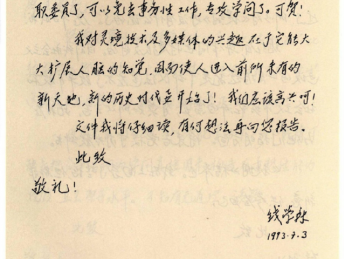 职委员了，可以免去事务性工作，专攻学问了。可贺！
我对灵境技术及多媒体的兴趣在于它能大
大扩展人脑的知觉，因而使人进入前所未有的
新天地，新的历史时代要开始了！我们应该高兴呵！
文件我将仔细读，有何想法再向您报告。
此致
敬礼！
钱学森
1993.7.3